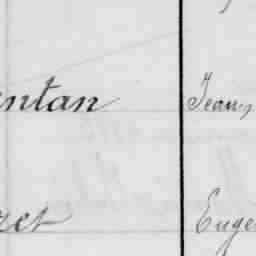 ntan Jean
ret Euge